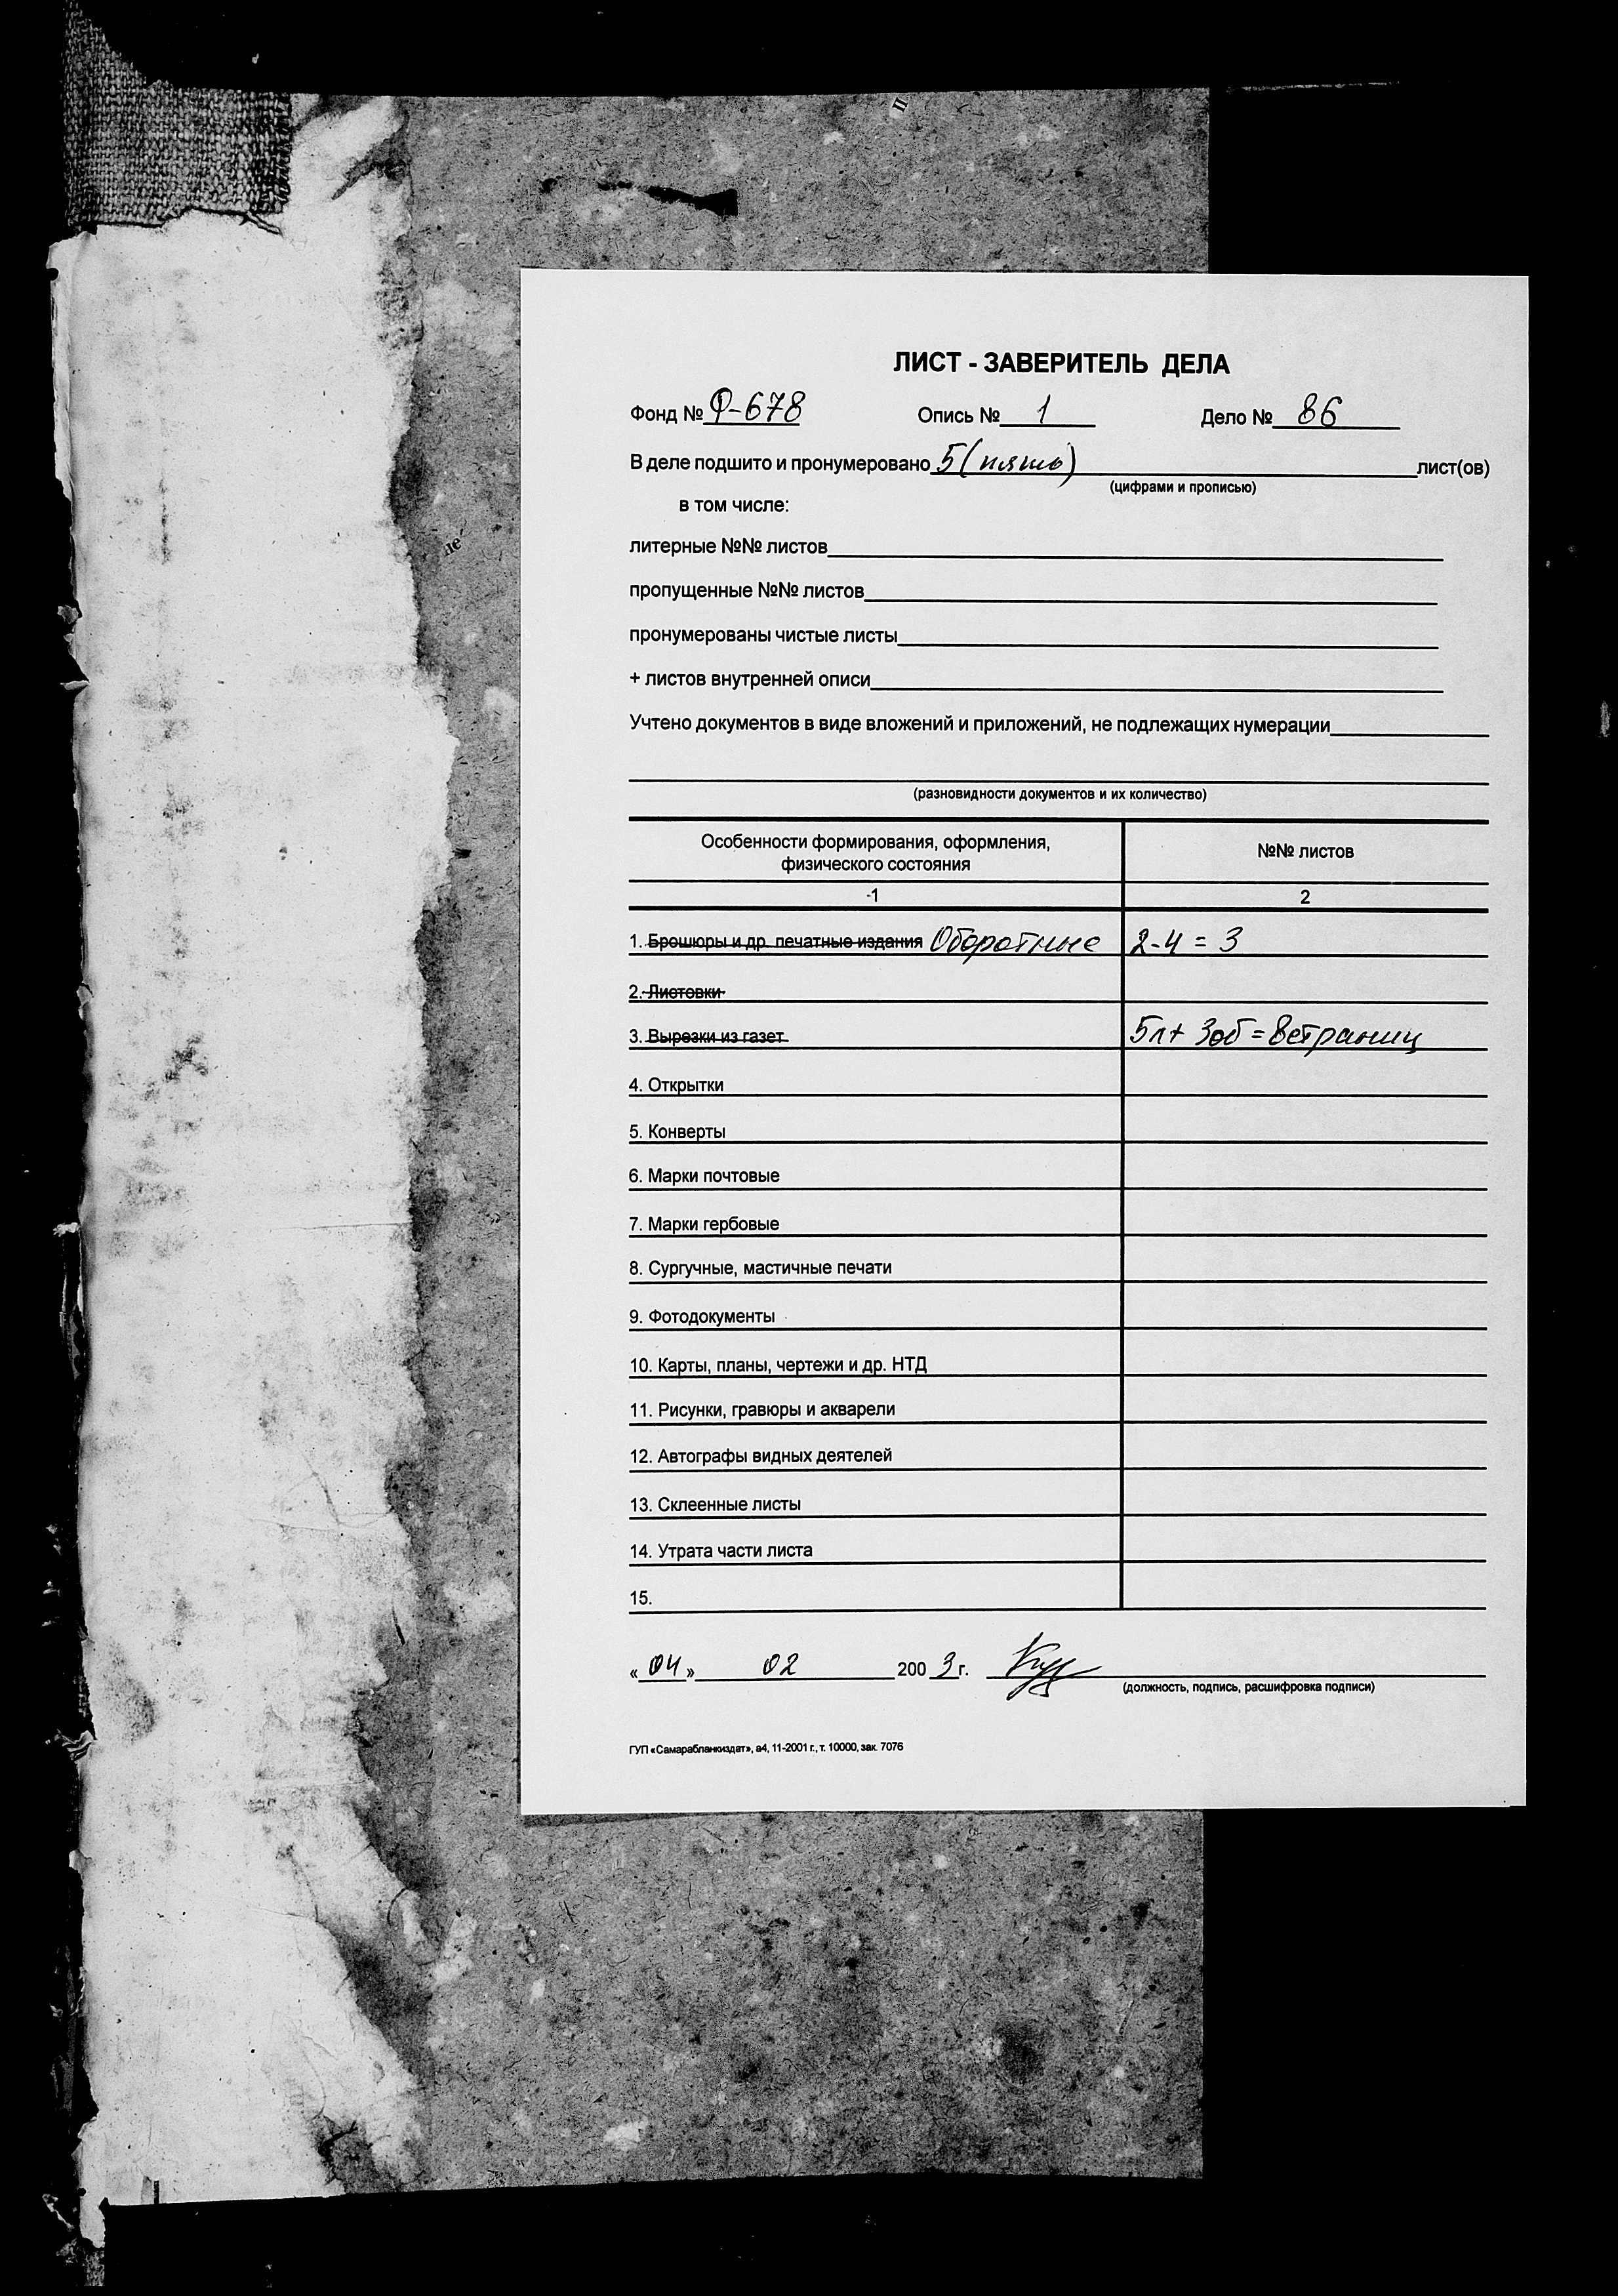 ЛИСТ - ЗАВЕРИТЕЛЬ ДЕЛА
Фонд № Ф-678 Опись № 1 Дело № 86
В деле подшито и пронумеровано 5 (пять) лист(ов)
(цифрами и прописью)
в том числе:
литерные №№ листов
пропущенные №№ листов
пронумерованы чистые листы
+ листов внутренней описи
Учтено документов в виде вложений и приложений, не подлежащих нумерации
(разновидности документов и их количество)
Особенности формирования, оформления, физического состояния №№ листов
1 2
1. Брошюры и др. печатные издания Оборотные 2-4 = 3
2. Листовки
3. Вырезки из газет 5л + 3об = 8 страниц
4. Открытки
5. Конверты
6. Марки почтовые
7. Марки гербовые
8. Сургучные, мастичные печати
9. Фотодокументы
10. Карты, планы, чертежи и др. НТД
11. Рисунки, гравюры и акварели
12. Автографы видных деятелей
13. Склеенные листы
14. Утрата части листа
15.
« 04 » 02 200 3 г.
(должность, подпись, расшифровка подписи)
ГУП «Самарабланкиздат», а4, 11-2001 г., т. 10000, зак. 7076